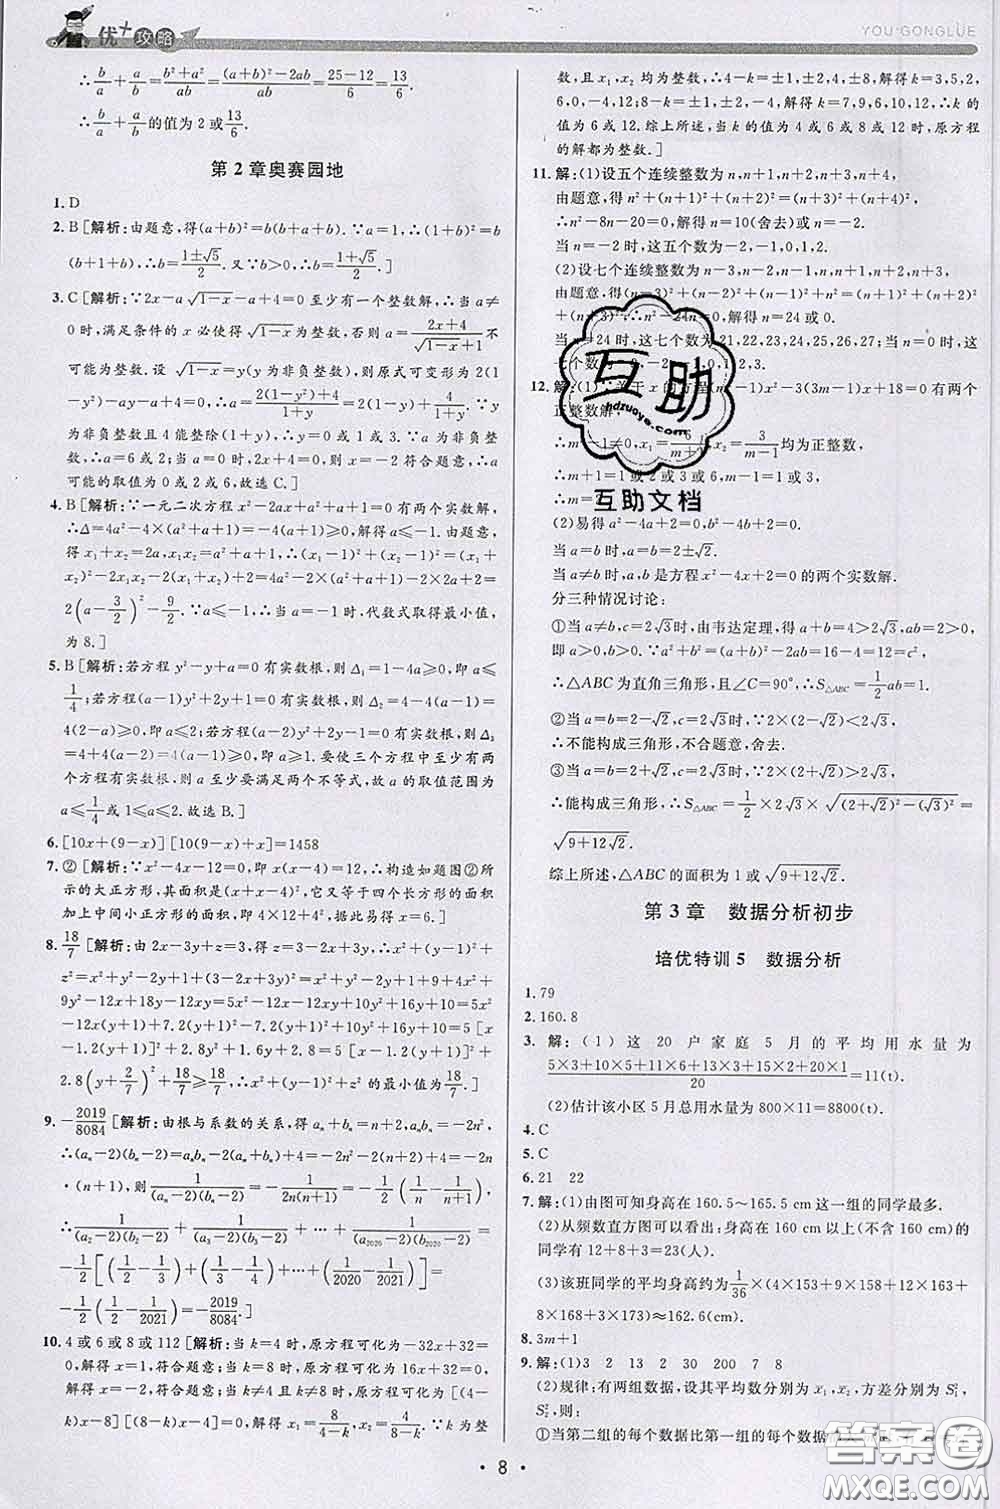 优+攻略
YOU·GONGLÜE
∴b/a+a/b=(b²+a²)/ab=((a+b)²-2ab)/ab=(25-12)/6=13/6.
∴b/a+a/b的值为2或13/6.
第2章奥赛园地
1.D
2.B[解析:由题意,得(a+b)²=b(b+a+b).∵a=1,∴(1+b)²=b
(b+1+b),∴b=(1±√5)/2.又∵b>0,∴b=(1+√5)/2.]
3.C[解析:∵2x-a√(1-x)-a+4=0至少有一个整数解,∴当a≠
0时,满足条件的x必使得√(1-x)为整数,否则a=(2x+4)/(√(1-x)+1)不
可能为整数.设√(1-x)=y(y为非负整数),则原式可变形为2(1
-y²)+4=a(y+1),∴a=(2(1-y²)+4)/(1+y)=2(1-y)+4/(1+y).∵y
为非负整数且4能整除(1+y),∴y=0或1或3.
当y=0时,a=6;当y=1时,a=2;当y=3时,a=-3,不合题意,
舍去;当a=0时,2x+4=0,解得x=-2符合题意.综上所述,a
可能的取值为0或2或6,故选C.]
4.B[解析:∵一元二次方程x²-2ax+a²+a+1=0有两个实数解,
∴Δ=4a²-4×(a²+a+1)=-4(a+1)≥0,解得a≤-1.由题意,
得x₁+x₂=2a,x₁x₂=a²+a+1,∴(x₁-1)²+(x₂-1)²=(x₁+
x₂)²-2x₁x₂-2(x₁+x₂)+2=4a²-2×(a²+a+1)-2×2a+2=
2(a-3/2)²-9/2.∵a≤-1,∴当a=-1时,代数式取得最小值,
为8.]
5.B[解析:若方程y²-y+a=0有实数根,则Δ₁=1-4a≥0,即a≤
1/4;若方程(a-1)y²+2y+1=0有实数根,则Δ₂=4-4(a-1)=
4(2-a)≥0,即a≤2;若方程(a-2)y²+2y-1=0有实数根,则Δ₃
=4+4(a-2)=4(a-1)≥0,即a≥1.要使三个方程中至少有
两个方程有实数根,则a至少要满足两个不等式,故a的取值范围为
a≤1/4或1≤a≤2.故选B.]
6.[10x+(9-x)][10(9-x)+x]=1458
7.②[解析:∵x²-4x-12=0,即x(x-4)=12,∴构造如题图②所
示的大正方形,其面积是(x+x-4)²,它又等于四个长方形的面积
加上中间小正方形的面积,即4×12+4²,据此易得x=6.]
8.18/7[解析:由2x-3y+z=3,得z=3-2x+3y,∴x²+(y-1)²+z²
=x²+(y-1)²+(3-2x+3y)²=x²+y²-2y+1+4x²+9y²+9+
18y-12x-12xy=5x²-12x-12xy+10y²+16y+10=5[x²-
2x×1.2(y+1)+1.2(y+1)²]-7.2(y+1)²+10y²+16y+10=5[x
-1.2(y+1)]²+2.8y²+1.6y+2.8=5[x-1.2(y+1)]²+
2.8(y+2/7)²+18/7≥18/7,∴x²+(y-1)²+z²的最小值为18/7.]
9.-2019/8084[解析:由根与系数的关系,得aₙ+bₙ=n+2,aₙbₙ=-2n²,
∴(aₙ-2)(bₙ-2)=aₙbₙ-2(aₙ+bₙ)+4=-2n²-2(n+2)+4=-2n
·(n+1),则1/((aₙ-2)(bₙ-2))=-1/(2n(n+1))=-1/2(1/n-1/(n+1)),
∴1/((a₂-2)(b₂-2))+1/((a₃-2)(b₃-2))+…+1/((a₂₀₂₀-2)(b₂₀₂₀-2))=
-1/2[(1/2-1/3)+(1/3-1/4)+…+(1/2020-1/2021)]=-1/2×
(1/2-1/2021)=-2019/8084.]
10.4或6或8或112[解析:当k=4时,原方程可化为-32x+32=0,
解得x=1,符合题意;当k=8时,原方程可化为16x+32=0,解得
x=-2,符合题意;当k≠4且k≠8时,原方程可化为[(4-
k)x-8][(8-k)x-4]=0,解得x₁=8/(4-k),x₂=4/(8-k).∵k为整
数,且x₁,x₂均为整数,∴4-k=±1,±2,±4,±8,解得k=3,5,2,
6,0,-4,-12;或8-k=±1,±2,±4,解得k=7,9,6,10,4,12,∴k的
值为6或12.综上所述,当k的值为4或6或8或12时,原方程
的解都为整数.]
11.解:(1)设五个连续整数为n,n+1,n+2,n+3,n+4,
由题意,得n²+(n+1)²+(n+2)²=(n+3)²+(n+4)²,
∴n²-8n-20=0,解得n=10(舍去)或n=-2.
当n=-2时,这五个数为-2,-1,0,1,2.
(2)设七个连续整数为n-3,n-2,n-1,n,n+1,n+2,n+3,
∴n²-24n=0,解得n=24或0.
当n=24时,这七个数为21,22,23,24,25,26,27;当n=0时,这
12.解:(1)∵关于x的方程(m²-1)x²-3(3m-1)x+18=0有两个
正整数解,
∴m²-1≠0,x₁=6/(m+1),x₂=3/(m-1)均为正整数,
∴m+1=1或2或3或6,m-1=1或3,
∴m=2.
(2)易得a²-4a+2=0,b²-4b+2=0.
当a=b时,a=b=2±√2.
当a≠b时,a,b是方程x²-4x+2=0的两个实数解.
分三种情况讨论:
①当a≠b,c=2√3时,由韦达定理,得a+b=4>2√3,ab=2>0,
即a>0,b>0.∵a²+b²=(a+b)²-2ab=16-4=12=c²,
∴△ABC为直角三角形,且∠C=90°,∴S△ABC=1/2ab=1.
②当a=b=2-√2,c=2√3时,∵2×(2-√2)<2√3,
∴不能构成三角形,不合题意,舍去.
③当a=b=2+√2,c=2√3时,∵2×(2+√2)>2√3,
∴能构成三角形,∴S△ABC=1/2×2√3×√((2+√2)²-(√3)²)=
√(9+12√2).
综上所述,△ABC的面积为1或√(9+12√2).
第3章 数据分析初步
培优特训5 数据分析
1.79
2.160.8
3.解:(1)这20户家庭5月的平均用水量为
(5×3+11×5+11×6+13×3+15×2+20×1)/20=11(t).
(2)估计该小区5月总用水量为800×11=8800(t).
4.C
5.C
6.21 22
7.解:(1)由图可知身高在160.5~165.5 cm这一组的同学最多.
(2)从频数直方图可以看出:身高在160 cm以上(不含160 cm)的
同学有12+8+3=23(人).
(3)该班同学的平均身高约为1/36×(4×153+9×158+12×163+
8×168+3×173)≈162.6(cm).
8.3m+1
9.解:(1)3 2 13 2 30 200 7 8
(2)规律:有两组数据,设其平均数分别为x̄₁,x̄₂,方差分别为S₁²,
S₂²,则:
①当第二组的每个数据比第一组的每个数据
·8·
互助
hdzuoye.com
互助文档
答案圈
MXQE.COM